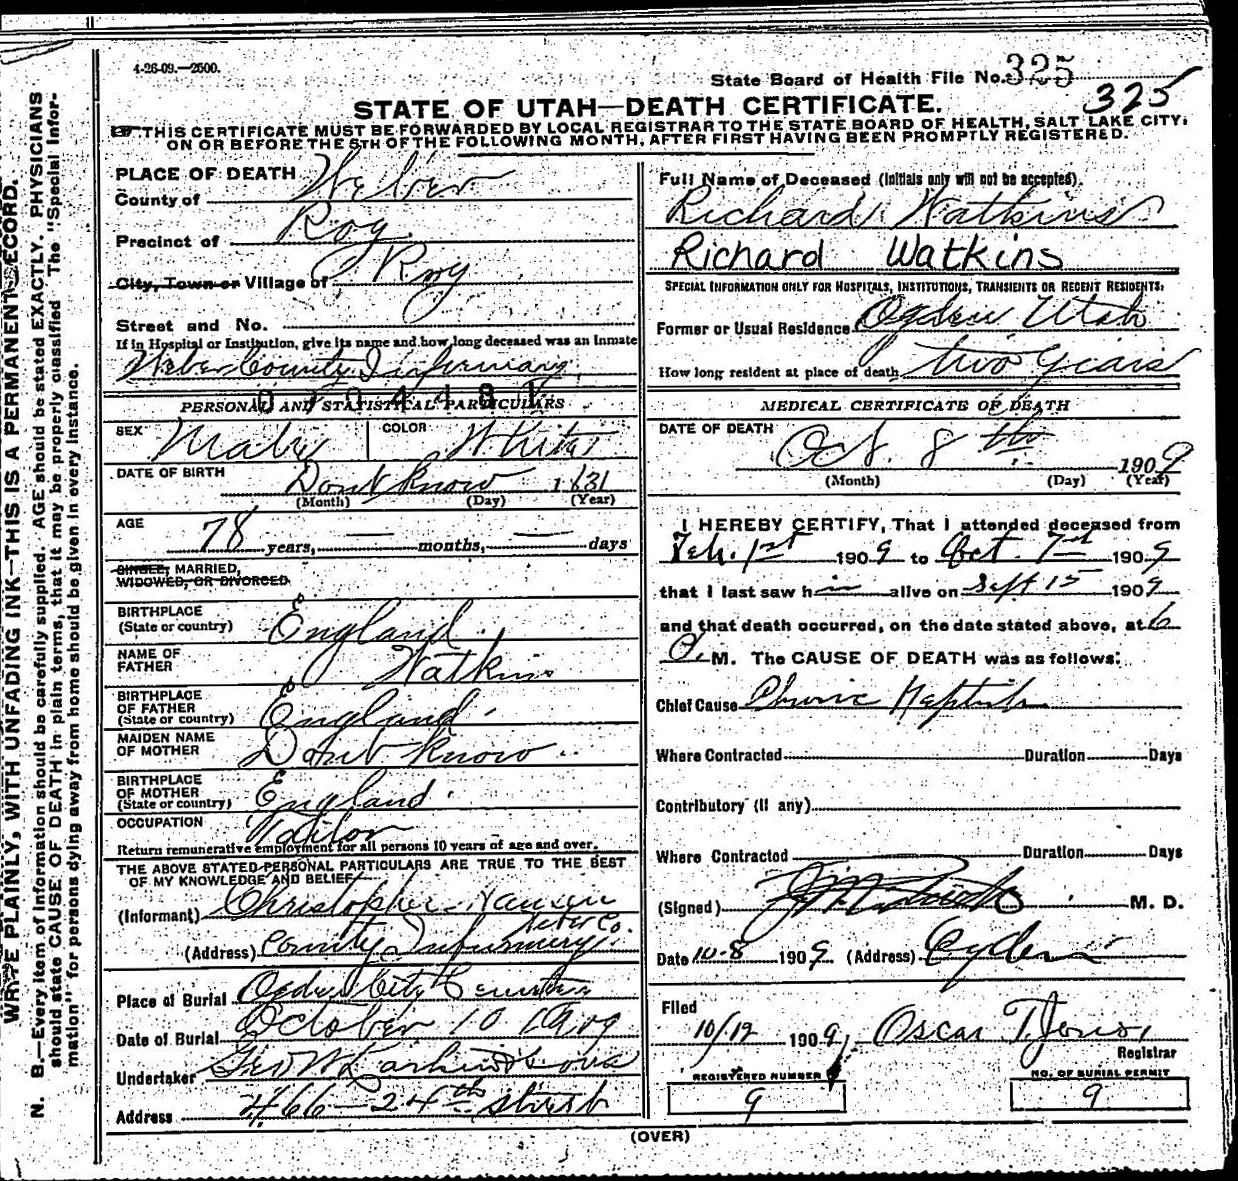 4-26-09.—2500.
State Board of Health File No. 325
325
STATE OF UTAH—DEATH CERTIFICATE.
THIS CERTIFICATE MUST BE FORWARDED BY LOCAL REGISTRAR TO THE STATE BOARD OF HEALTH, SALT LAKE CITY,
ON OR BEFORE THE 5TH OF THE FOLLOWING MONTH, AFTER FIRST HAVING BEEN PROMPTLY REGISTERED.
PLACE OF DEATH
County of Weber
Precinct of Roy
City, Town or Village of Roy
Street and No.
If in Hospital or Institution, give its name and how long deceased was an Inmate
Weber County Infirmary
PERSONAL AND STATISTICAL PARTICULARS
SEX Male COLOR White
DATE OF BIRTH Dont know 1831
(Month) (Day) (Year)
AGE
78 years, — months, — days
SINGLE, MARRIED,
WIDOWED, OR DIVORCED
BIRTHPLACE
(State or country) England
NAME OF
FATHER Watkins
BIRTHPLACE
OF FATHER
(State or country) England
MAIDEN NAME
OF MOTHER Dont know
BIRTHPLACE
OF MOTHER
(State or country) England
OCCUPATION
Return remunerative employment for all persons 10 years of age and over.
THE ABOVE STATED PERSONAL PARTICULARS ARE TRUE TO THE BEST
OF MY KNOWLEDGE AND BELIEF
(Informant) Christopher Hansen
(Address) County Infirmery Weber Co.
Place of Burial Ogden City Cemetery
Date of Burial October 10 1909
Undertaker Geo W Larkin & Sons
Address 466—24th street
Full Name of Deceased (Initials only will not be accepted).
Richard Watkins
Richard Watkins
SPECIAL INFORMATION ONLY FOR HOSPITALS, INSTITUTIONS, TRANSIENTS OR RECENT RESIDENTS.
Former or Usual Residence Ogden Utah
How long resident at place of death two years
MEDICAL CERTIFICATE OF DEATH
DATE OF DEATH
Oct. 8th 1909
(Month) (Day) (Year)
I HEREBY CERTIFY, That I attended deceased from
Feb. 1st 1909 to Oct. 7th 1909
that I last saw him alive on Sept 15 1909
and that death occurred, on the date stated above, at 6
A. M. The CAUSE OF DEATH was as follows:
Chief Cause Chronic Nephritis
Where Contracted Duration Days
Contributory (if any)
Where Contracted Duration Days
(Signed) M. D.
Date 10-8 1909 (Address) Ogden
Filed
10/12 1909, Oscar T. Jones,
Registrar
REGISTERED NUMBER
9
NO. OF BURIAL PERMIT
9
(OVER)
WRITE PLAINLY, WITH UNFADING INK—THIS IS A PERMANENT RECORD.
N. B.—Every item of information should be carefully supplied. AGE should be stated EXACTLY. PHYSICIANS
should state CAUSE OF DEATH in plain terms, that it may be properly classified. The "Special Infor-
mation" for persons dying away from home should be given in every instance.